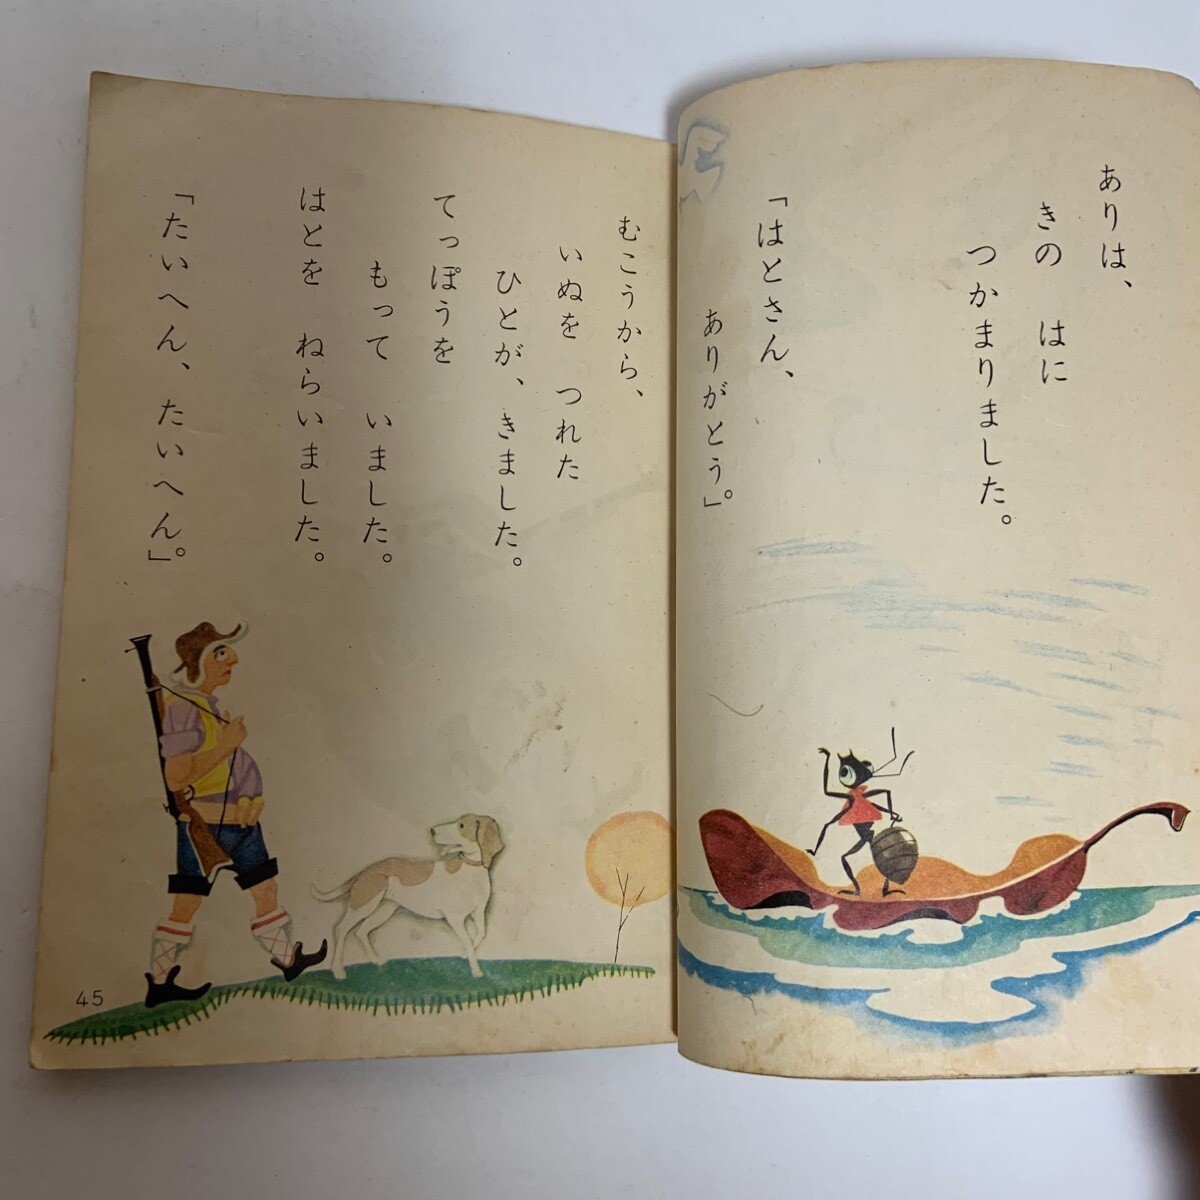 ありは、
きの　はに
つかまりました。
「はとさん、
ありがとう。」
むこうから、
いぬを　つれた
ひとが、きました。
てっぽうを
もって　いました。
はとを　ねらいました。
「たいへん、たいへん。」
45